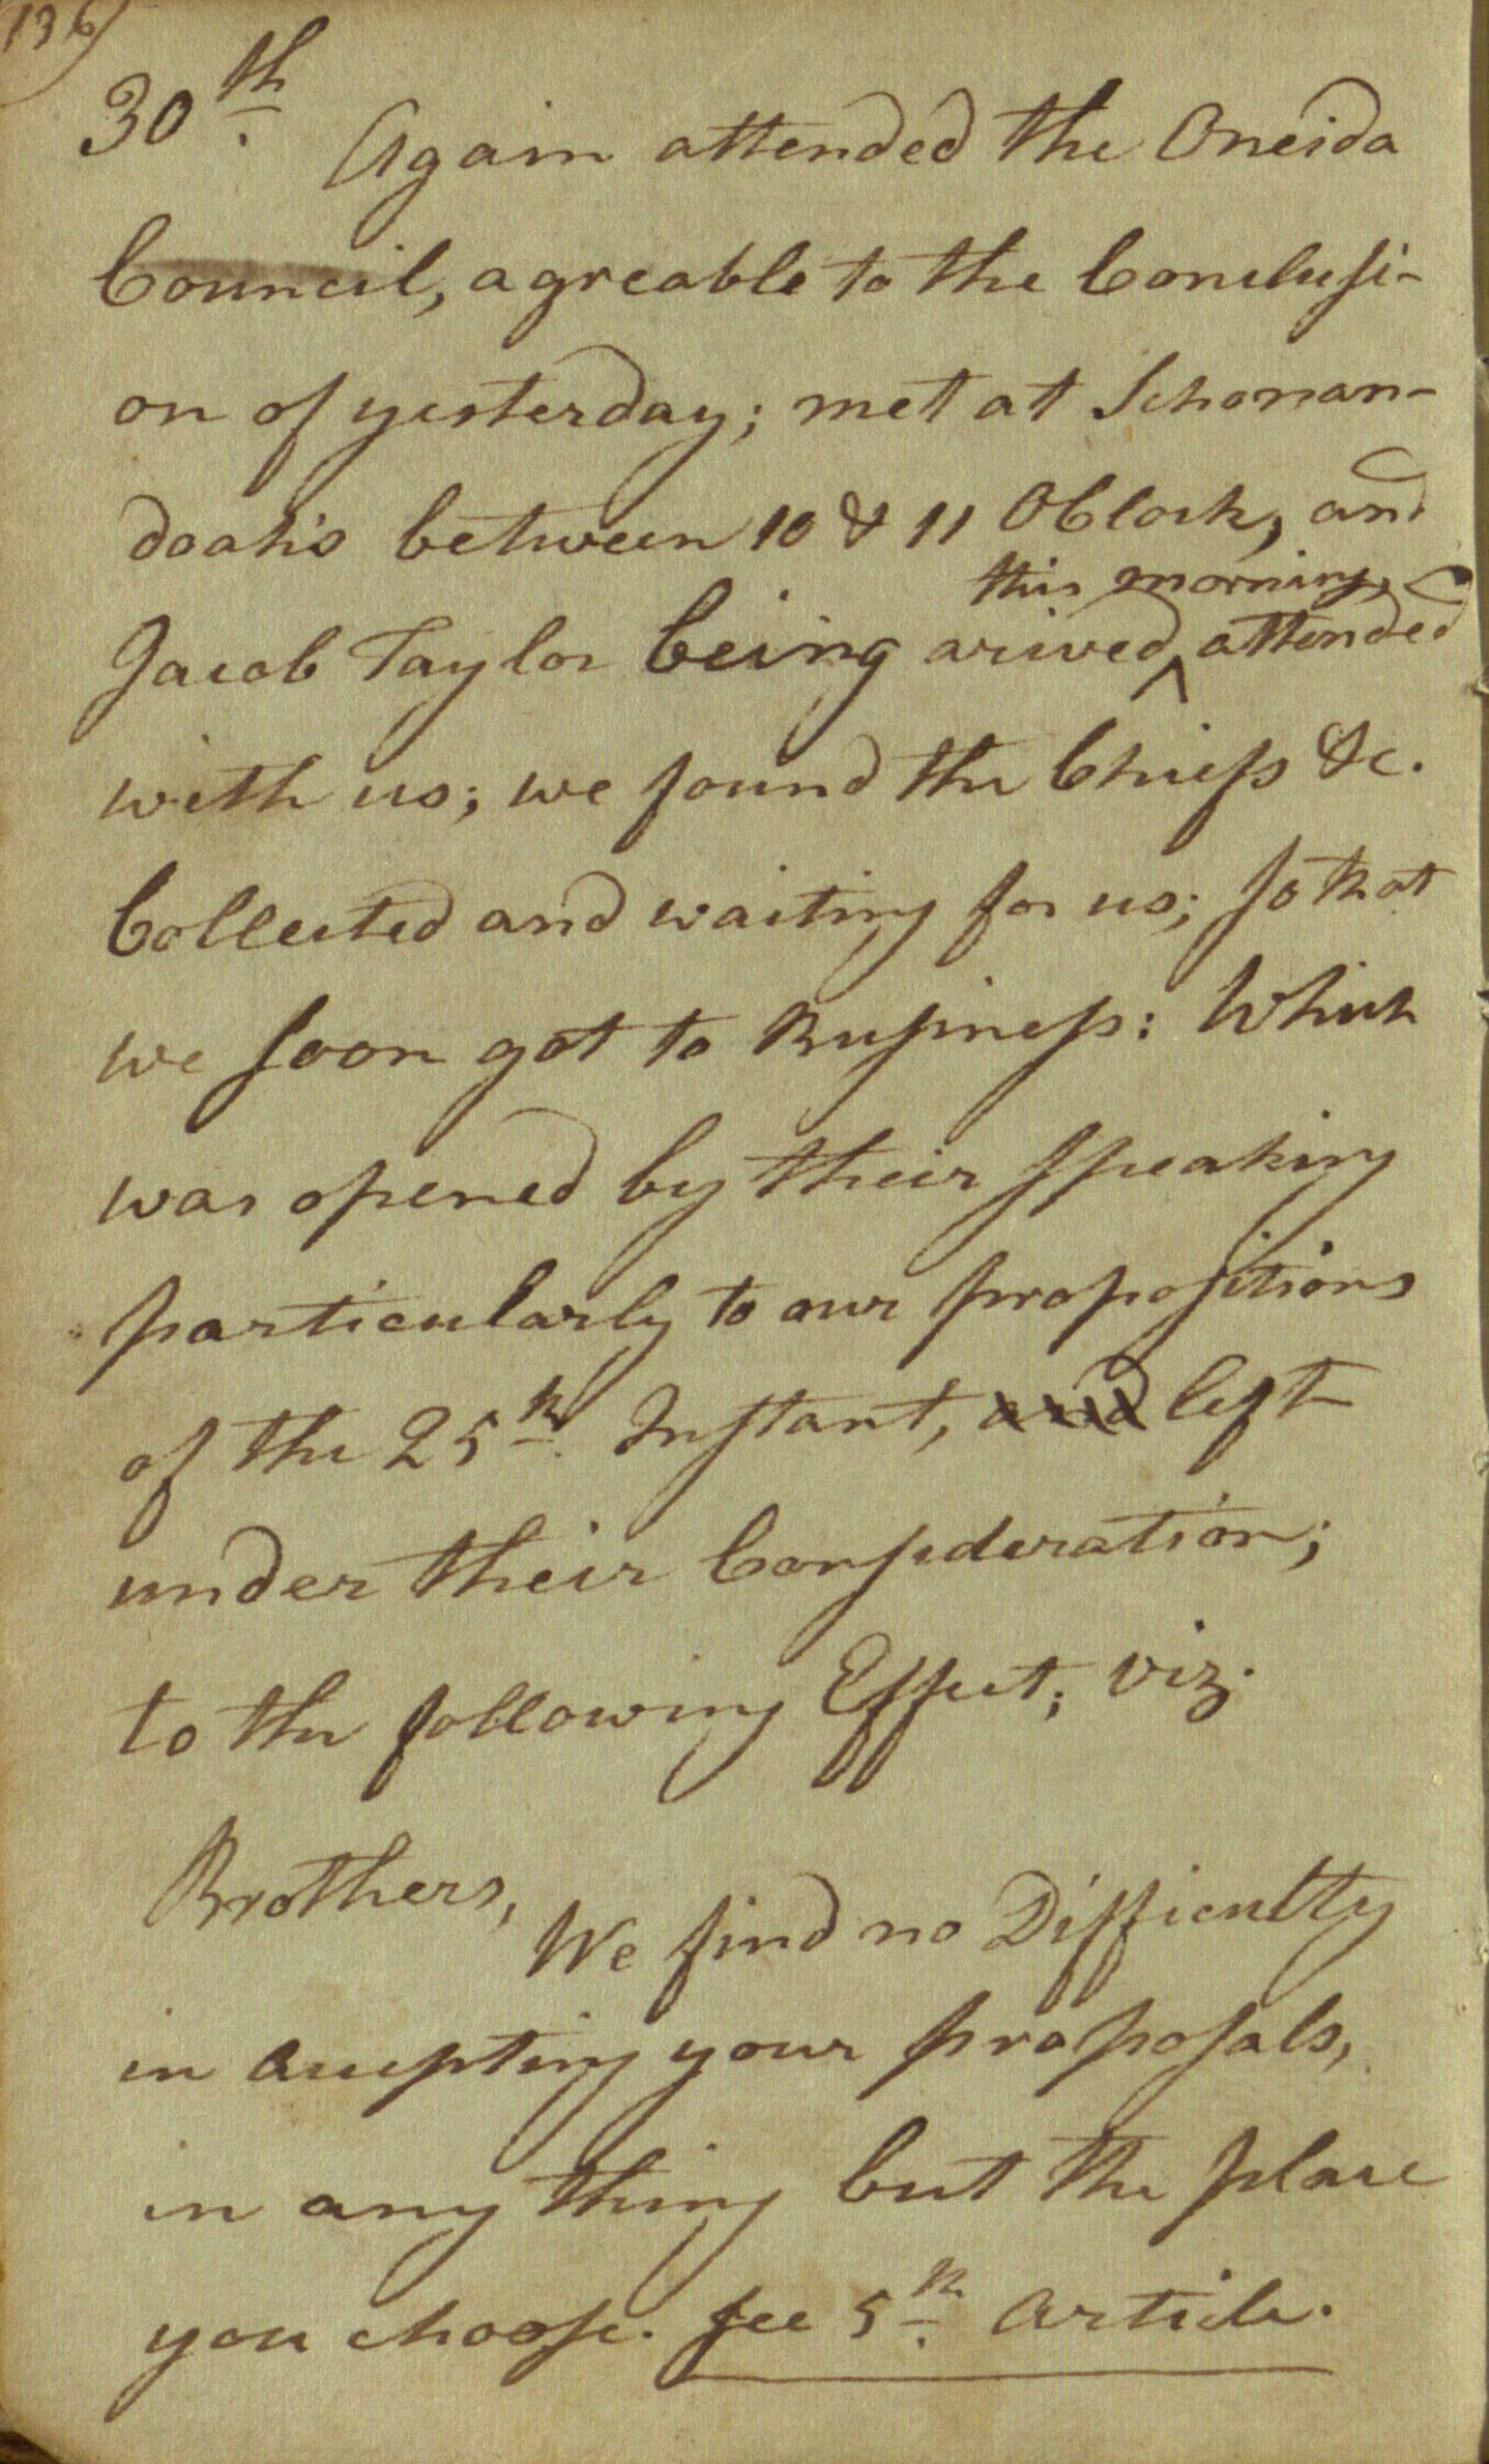 136
30th. Again attended the Oneida
Council, agreable to the Conclusi-
on of yesterday; met at Schonan-
doah's between 10 & 11 OClock, and
this morning,
Jacob Taylor being arived ^ attended
with us; we found the Chiefs &c.
Collected and waiting for us; so that
we soon got to Business: Which
was opened by their speaking
particularly to our propositions
of the 25th. Instant, and left
under their Consideration;
to the following Effect; viz.
Brothers,
We find no Difficulty
in accepting your proposals,
in any thing but the place
you choose. see 5th. Article.